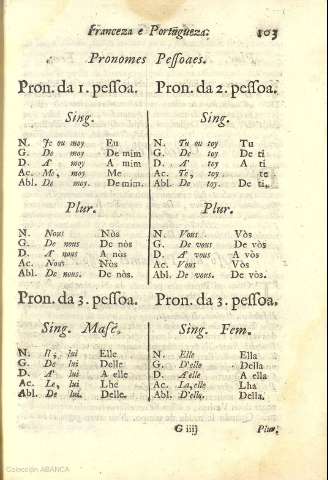 Franceza e Portugueza. 103
Pronomes Pessoaes.
Pron. da 1. pessoa. Pron. da 2. pessoa.
Sing. Sing.
N. Je ou moy Eu N. Tu ou toy Tu
G. De moy De mim G. De toy De ti
D. A' moy A mim D. A' toy A ti
Ac. Me, moy Me Ac. Te, toy te
Abl. De moy. De mim. Abl. De toy. De ti.
Plur. Plur.
N. Nous Nòs N. Vous Vòs
G. De nous De nòs G. De vous De vòs
D. A' nous A nòs D. A' vous A vòs
Ac. Nous Nòs Ac. Vous Vòs
Abl. De nous. De nòs. Abl. De vous. De vòs.
Pron. da 3. pessoa. Pron. da 3. pessoa.
Sing. Masc. Sing. Fem.
N. Il, lui Elle N. Elle Ella
G. De lui Delle G. D'elle Della
D. A' lui A elle D. A'elle A ella
Ac. Le, lui Lhe Ac. La, elle Lha
Abl. De lui. Delle. Abl. D'elle. Della.
G iij Plur.
Colección ABANCA